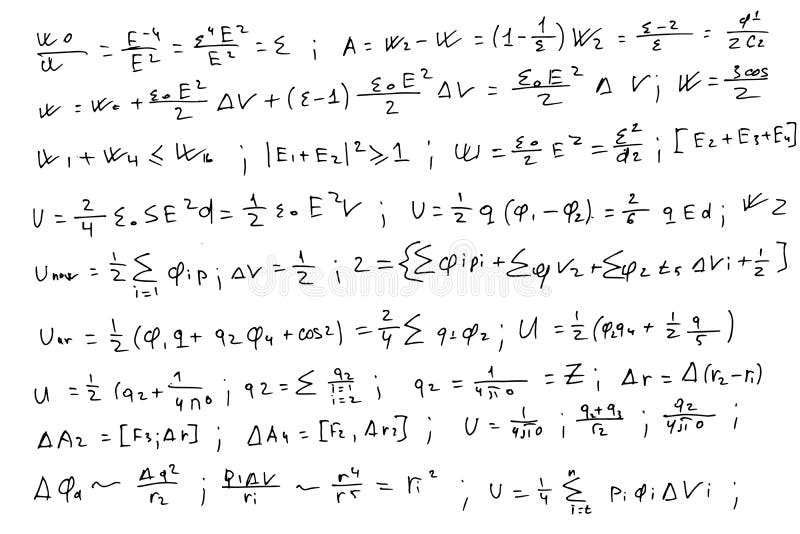 W0/W = E⁻⁴/E² = ε⁴E²/E² = ε ; A = W₂ − W = (1 − 1/ε) W₂ = ε−2/ε = q¹/2C₂
W = W₀ + ε₀E²/2 ΔV + (ε−1) ε₀E²/2 ΔV = ε₀E²/2 Δ V; W = 3cos/2
W₁ + W₄ ≤ W₁₆ ; |E₁+E₂|² ≥ 1 ; W = ε₀/2 E² = ε²/d2 ; [E₂+E₃+E₄]
U = 2/4 ε₀SE²d = 1/2 ε₀E²V ; U = 1/2 q (φ₁−φ₂) = 2/6 qEd ; W 2
= 1/2 ∑ i=1 φip ; ΔV = 1/2 ; 2 = {∑φipi + ∑φV₂ + ∑φ₂t₅ ΔVi + 1/2]
= 1/2 (φ₁q + q2φ₄ + cos2) = 2/4 ∑ q1φ₂ ; U = 1/2 (φ₂q₄ + 1/2 q/5)
U = 1/2 (q₂ + 1/4π0 ; q2 = ∑ q₂ i=1 i=2 ; q2 = 1/4π0 = Z ; Δr = Δ(r₂−r₁)
ΔA₂ = [F₃;Δr] ; ΔA₄ = [F₂, Δr₂] ; U = 1/4π0 ; q₂+q₃/r₂ ; q₂/4π0 ;
Δφₐ ~ Δq²/r₂ ; φ1ΔV/ri ~ r⁴/r⁵ = ri² ; U = 1/4 ∑ n i=t Pi φi ΔVi ;
dreamstime